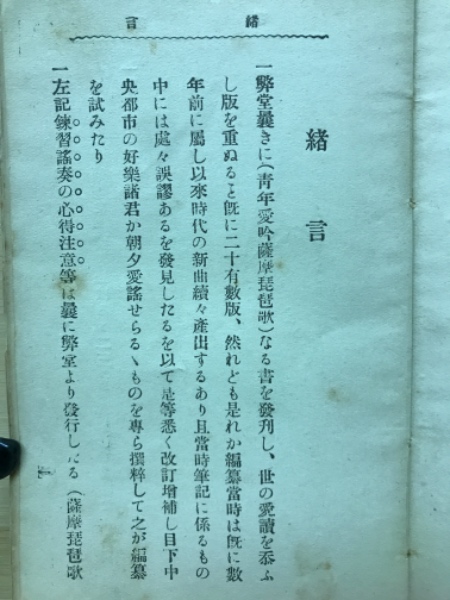 緒言
緒言
一弊堂曩きに(靑年愛吟薩摩琵琶歌)なる書を發刊し、世の愛讀を忝ふ
し版を重ぬると既に二十有數版、然れども是れか編纂當時は既に數
年前に屬し以來時代の新曲續々產出するあり且當時筆記に係るもの
中には處々誤謬あるを發見したるを以て是等悉く改訂增補し目下中
央都市の好樂諸君か朝夕愛謠せらるゝものを專ら撰粹して之が編纂
を試みたり
一左記練習謠奏の心得注意等は曩に弊堂より發行したる(薩摩琵琶歌